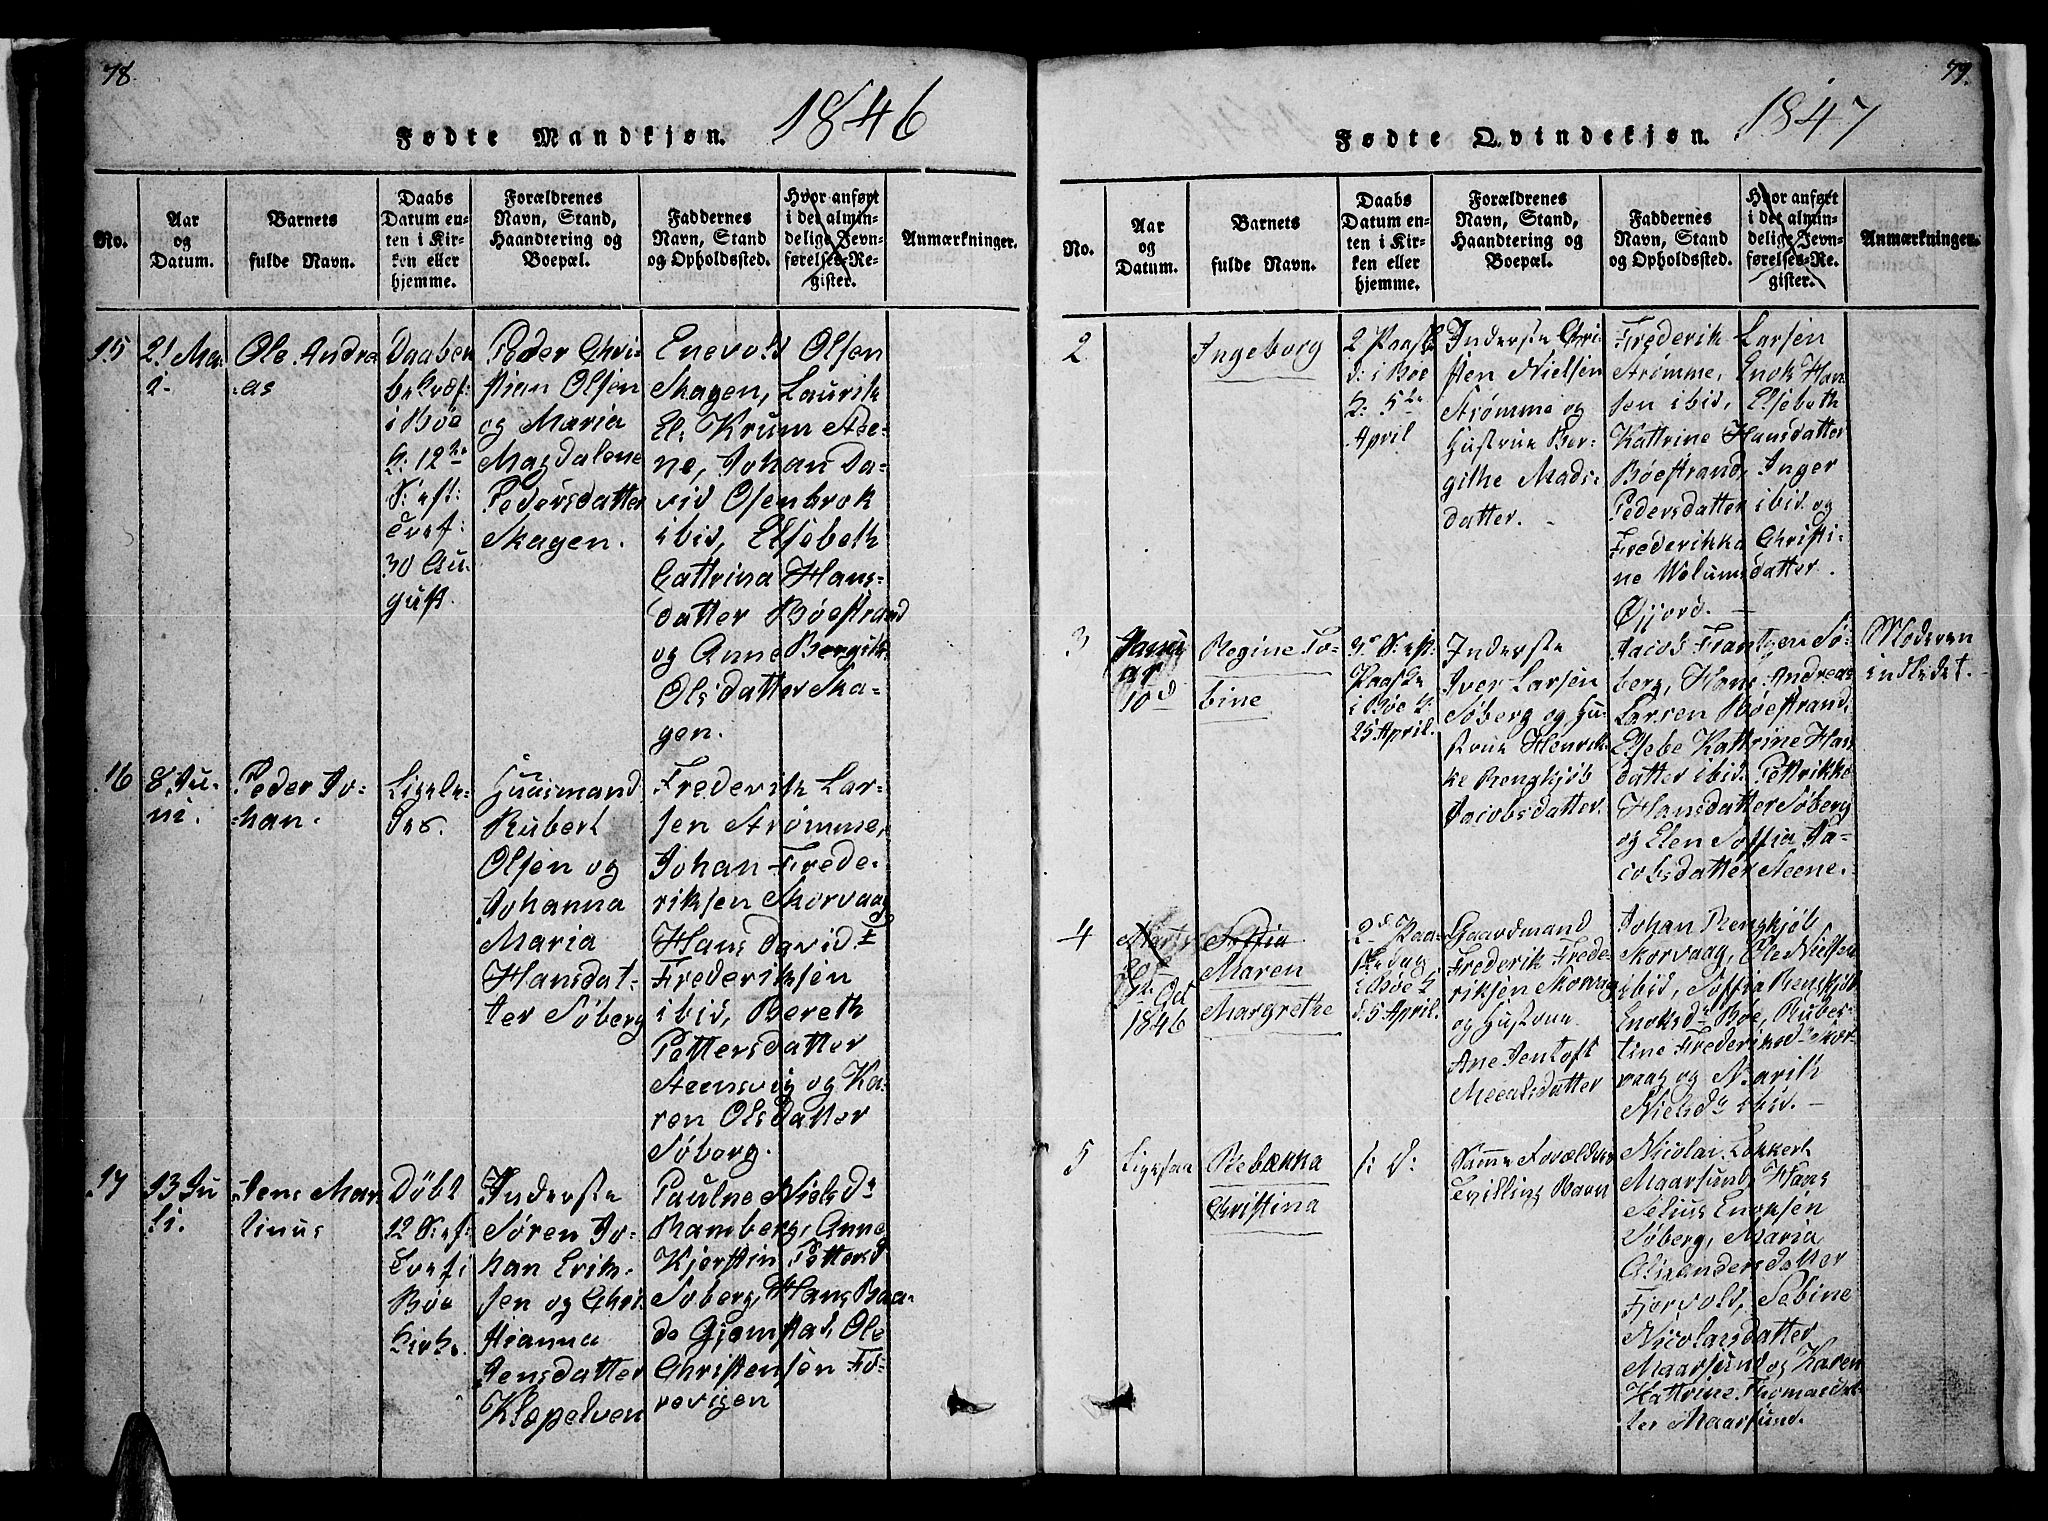 78.
Fødte Mandkjøn. 1846
No.
Aar
og
Datum.
Barnets
fulde Navn.
Daabs
Datum en-
ten i Kir-
ken eller
hjemme.
Forældrenes
Navn, Stand,
Haandtering og
Boepæl.
Faddernes
Navn, Stand
og Opholdssted.
Hvor anført
i det almin-
delige Jevn-
førelses-Re-
gister.
Anmærkninger.
15
21 Ma-
i-
Ole Andre
as
Daaben
bekræf:
i Bøe
K: 12te
S: eft:
Tref:
30 Au-
gust.
Peder Chri-
stian Olsen
og Maria
Magdalene
Pedersdatter
Skagen.
Enevold Olsen
Skagen, Laurik
El: Krum Stee-
ne, Johan Da-
vid Osenbrok
ibid, Elsebeth
Cattrina Hans-
datter Bøestrand
og Anne Bergith
Olsdatter Ska-
gen.
16
8 Ju-
ni.
Peder Jo-
han.
Ligele-
des.
Huusmand
Rubert
Olsen og
Johanna
Maria
Hansdat-
ter Søberg
Frederik Lar-
sen Strømme,
Johan Frede-
riksen Skorvaag
Hans David
Frederiksen
ibid, Bereth
Pettersdatter
Steensvig og Ka-
ren Olsdatter
Søberg.
17
13 Ju
li.
Jens Mar
tinus
Døbt
12 S: ef:
Tref:
Bøe
Kirke.
Inderste
Søren Jo-
han Erik-
sen og Chri
stianna
Jensdatter
Klæpelven
Paulne Nielsdr
Ramberg, Anne
Kjerstin Pettersd
Søberg, Hans Baa-
de Gjemstad, Ole
Christensen Fø-
revigen
79.
Fødte Qvindekjøn. 1847
No.
Aar
og
Datum.
Barnets
fulde Navn.
Daabs
Datum en-
ten i Kir-
ken eller
hjemme.
Forældrenes
Navn, Stand,
Haandtering og
Boepæl.
Faddernes
Navn, Stand
og Opholdssted.
Hvor anført
i det almin-
delige Jevn-
førelses-Re-
gister.
Anmærkninger.
2
Ingeborg
2 Paask
d: i Bøe
K: 5te
April
Inderste Chri-
sten Nielsen
Strømme og
Hustrue Ber-
githe Mads-
datter.
Frederik Larsen
Strømme, Enok Han
sen ibid, Elsebeth
Kattrine Hansdatter
Bøestrand, Inger
Pedersdatter ibid og
Frederikka Christi-
ne Wolumsdatter
Øfjord.
3
Janu
ar
10d
Regine To-
bine
3d S: eft:
Paaske
i Bøe K:
25 April.
Inderste
Iver Larsen
Søberg og Hu-
strue Henrik-
ke Rengkjøb
Jacobsdatter.
Jacob Frantzen Sø-
berg, Hans Andreas
Larsen Bøestrand,
Elsebe Kattrine Hans
datter ibid. Pettrikke
Hansdatter Søberg
og Elen Soffia Ja-
cobsdatter Steene.
Moderen
indledet.
4
Oct
1846
Soffia
Maren
Margrethe
2d Paa-
skedag
i Bøe K
d: 5 April.
Gaardmand
Frederik Frede
riksen Skorvaag
og Hustrue
Ane Jentoft
Meealsdatter
Johan Rengkjøb
Skorvaag, Ole Nielsen
ibid, Soffia Rengkjøb
Enoksdr Bøe, Rubers-
tine Frederiksdr Skor
vaag og Marith
Nielsdr ibid.
5
Ligesaa
Rebækka
Christina
l: d:
Samme Forældres
Tvilling Barn
Nicolai Lokkert
Maarsund, Hans
Selius Enoksen
Søberg, Maria
Alexandersdatter
Fjervold, Sebine
Nicolaisdatter
Maarsund og Karen
Kattrine Thomasdat
ter Maarsund.